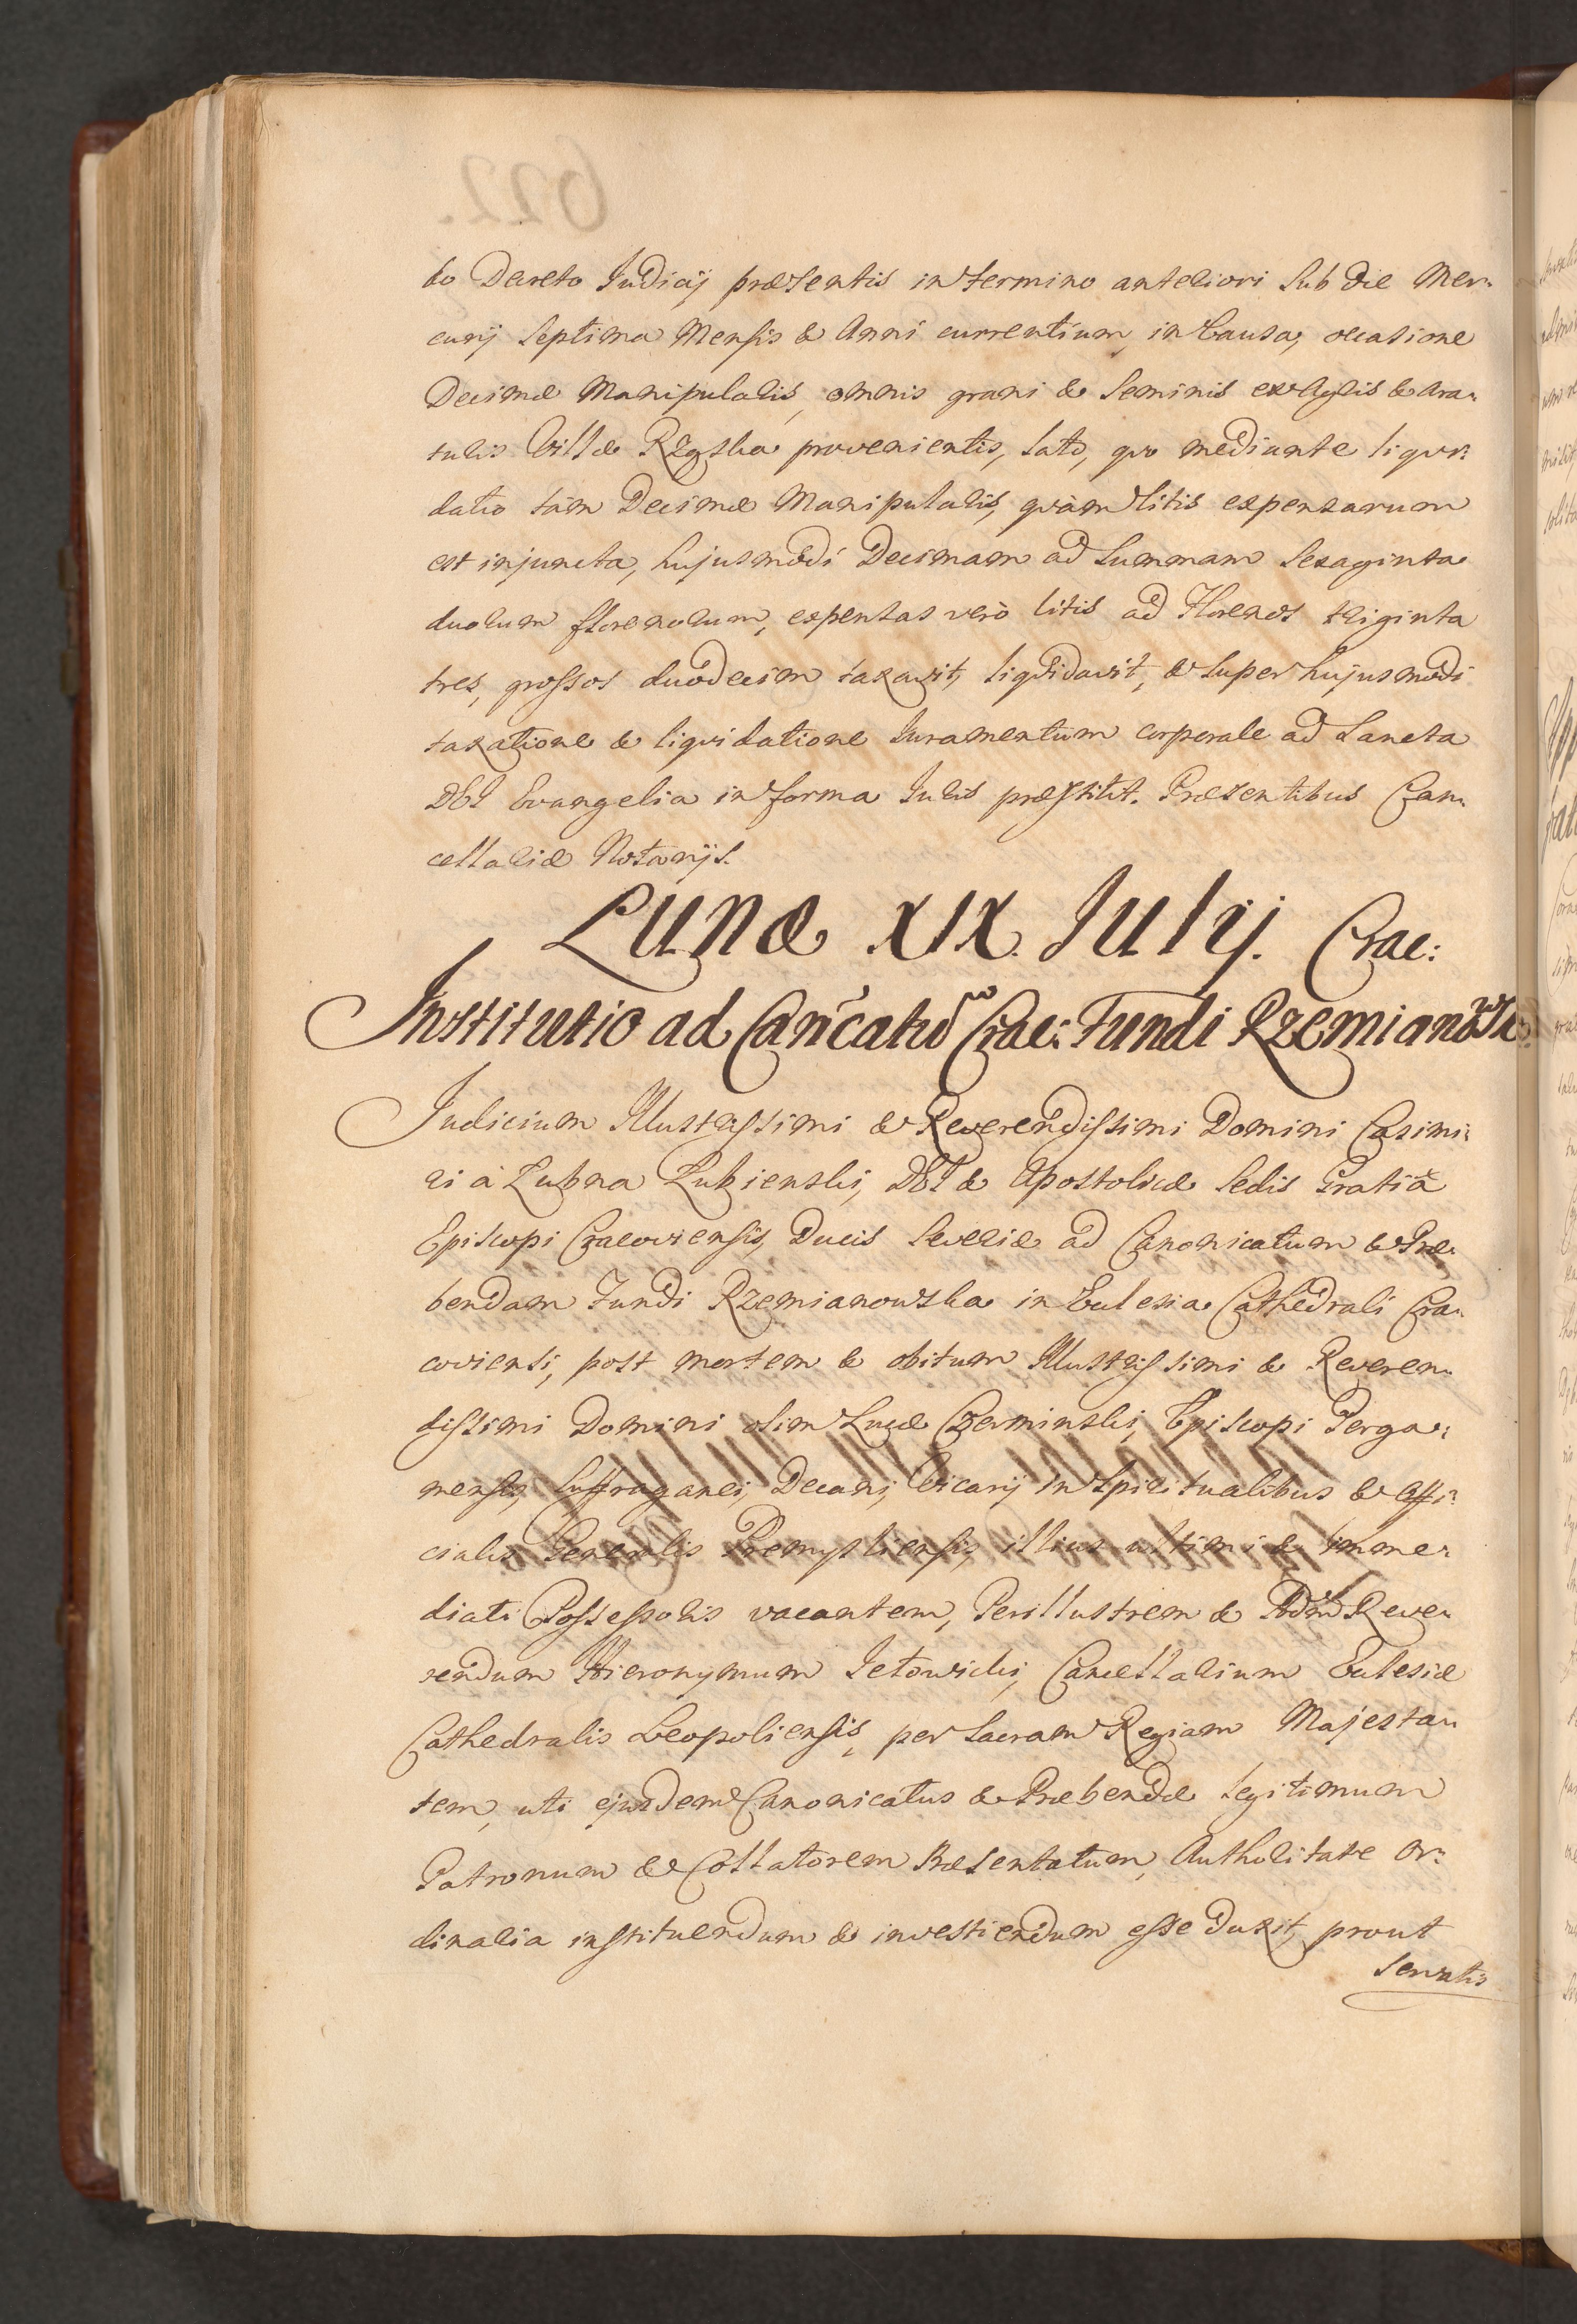 to Decreto Judicij præsentis in termino anteriori sub die Mer:
curij septima Mensis & Anni currentium, in Causa, occasione
Decimæ Manipularis, omnis grani & seminis ex Agris & Ara:
turis Villæ provenientis, lato, quo mediante liqui:
datio tàm Decimæ Manipularis, quàm litis expensarum
est injuncta, hujusmodi Decimam ad summam sexaginta
duorum florenorum, expensas verò litis ad Florenos triginta
tres, grossos duodecim taxavit, liqvidavit, & super hujusmodi
taxatione & liqvidatione Juramentum corporale ad Sancta
DEI Evangelia in forma Juris præstitit. Præsentibus Can:
cellariæ Notarijs.
Lunæ XIX. Julij. Crac:
Institutio ad Canÿcatũ Crac: Fundi
Judicium Illustrissimi & Reverendissimi Domini Casimi:
ri à Łubna Łubienski, DEI & Apostolicæ Sedis Gratiâ
Episcopi Cracoviensis, Ducis Severiæ ad Canonicatum & Præ:
bendam Fundi Rzemianowska in Ecclesia Cathedrali Cra:
coviensi, post mortem & obitum Illustrissimi & Reveren:
dissimi Domini olim Lucæ Czerminski, Episcopi Perga:
mensis, Suffraganei, Decani, Vicarij in Spiritualibus & Offi:
cialis Generalis Premysliensis, illius ultimi & imme:
diati Possessoris vacantem, Perillustrem & Adm̃ Reve:
rendum Hieronymum Jetowicki, Cancellarium Ecclesiæ
Cathedralis Leopoliensis, per Sacram Regiam Majesta:
tem, uti ejusdem Canonicatus & Præbendæ legitimum
Patronum & Collatorem Præsentatum, Authoritate Or:
dinaria instituendum & investiendum esse duxit, prout
servatis
622.